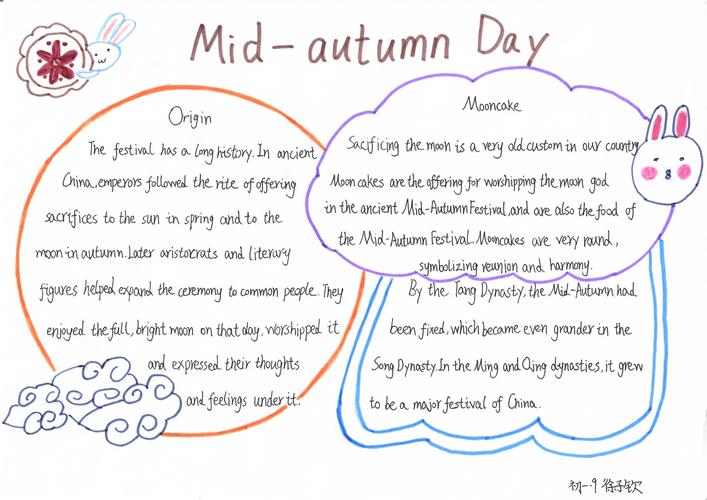 Mid-autumn Day
Origin
The festival has a long history. In ancient
China, emperors followed the rite of offering
sacrifices to the sun in spring and to the
moon in autumn. Later aristocrats and literary
figures helped expand the ceremony to common people. They
enjoyed the full, bright moon on that day, worshipped it
and expressed their thoughts
and feelings under it.
Mooncake
Sacificing the moon is a very old custom in our country
Moon cakes are the offering for worshipping the moon god
in the ancient Mid-Autumn Festival, and are also the food of
the Mid-Autumn Festival. Mooncakes are very round,
symbolizing reunion and harmony.
By the Tang Dynasty, the Mid-Autumn had
been fixed, which became even grander in the
Song Dynasty. In the Ming and Qing dynasties, it grew
to be a major festival of China.
初一.9 徐子钦